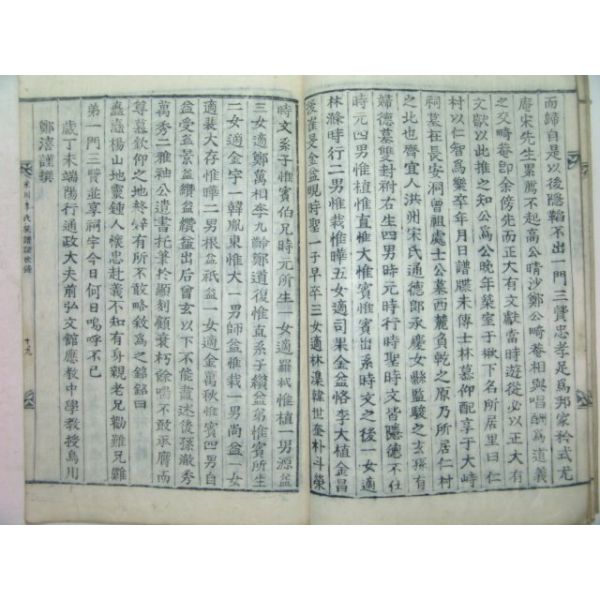 而歸自是以後隱輡不出一門三賢忠孝是爲邦家矜式尤
唐宋先生累薦不起高公晴沙鄭公畸菴相與唱酬爲道義
之交畸菴卽余傍先而正大有文獻當時遊從必以正大有
文獻以此推之知公爲公晩年築室于楸下名所居里曰仁
村以仁智爲樂卒年月日譜牒未傳士林慕仰配享于大峙
祠墓在長安洞曾祖處士公墓西麓負乾之原乃所居仁村
之北也齊宜人洪州宋氏通德郞永慶女縣監駿之玄孫有
婦德墓雙封祔右生四男時元時行時聖時文皆隱德不仕
時元四男惟植惟直惟大惟賓惟賓出系時文之後一女適
林滌時行二男惟栽惟曄五女適司果金益恪李大植金昌
後崔旻金益晛時聖一子早卒三女適林濮韓世奎朴斗榮
時文系子惟賓伯兄時元所生一女適羅栻惟植一男源益
三女適鄭萬相李九齡鄭道復惟直系子纘益第惟賓所生
二女適金宇一韓胤東惟大一男師益惟栽一男尚益一女
適裴大存惟曄二男根益秖益一女適金萬秋惟賓四男自
益受益䕺益纘益出后曾玄以下不能盡述後孫澈秀
秀文二雅袖公遺書托筆於顯刻顧衰朽餘喘不敢承膺而
尊慕欽仰之地終辭有所不敢略敘爲之銘銘曰
矗矗楊山地靈鍾人懷忠赴義不知有身親老兄勸難兄難
弟一門三賢並享祠宇今日何日嗚呼不已
歲丁未端陽行通政大夫前弘文館應敎中學敎授烏川
鄭濇謹撰
十九